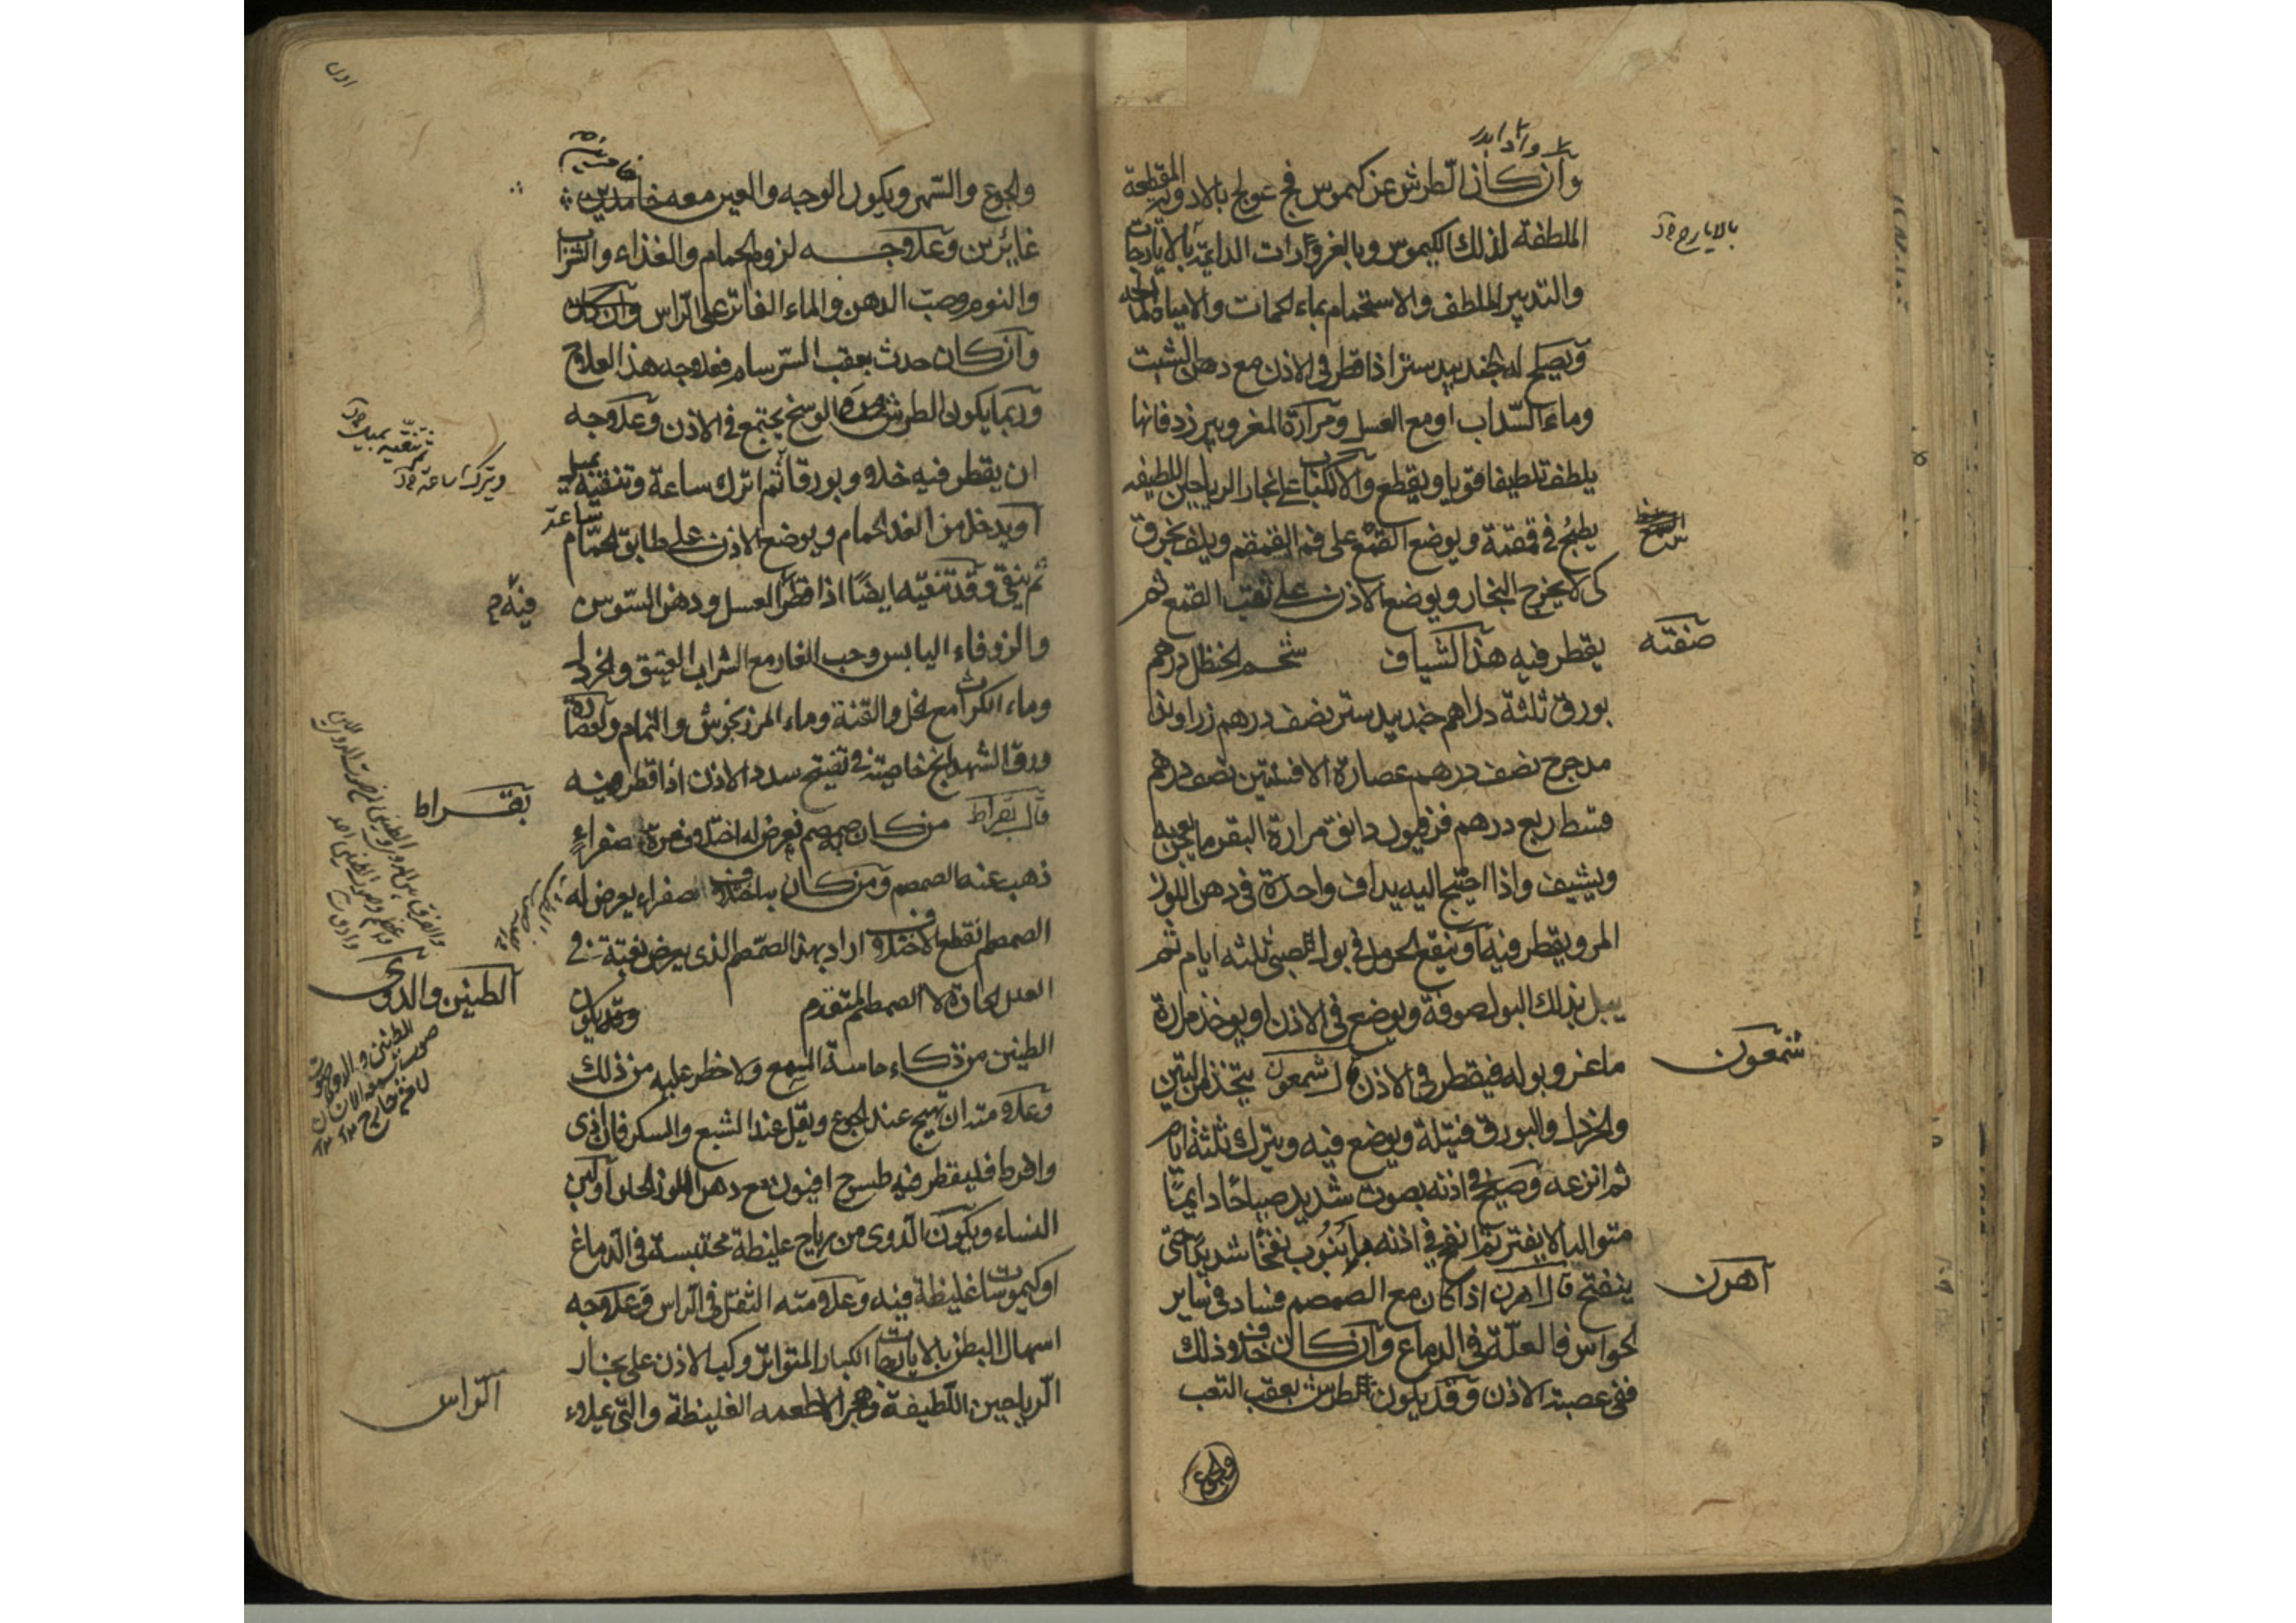 وان كان الطرش عن كيموس فج عولج بالادوية المقطعة
الملطفة لذلك الكيموس وبالغرغرات الدايمة بالايارجات
بالايارج
والتدبير الملطف والاستحمام بماء الحمات والامياه المالحة
ويصلح له الجندبيدستر اذا قطر في الاذن مع دهن الشبت
وماء السداب او مع العسل ومرارة المغرو بيرزد فانها
يلطف تلطيفا قويا ويقطع والاكباب على بخار الرياحين اللطيفه
يطبخ في قمقمة ويوضع القمع على فم القمقم ويلف بخرق
كى لا يخرج البخار ويوضع الاذن على ثقب القمع ثم
يقطر فيه هذا الشياف شحم الحنظل درهم
صفته
بورق ثلثة دراهم جندبيدستر نصف درهم زراوند
مدحرج نصف درهم عصارة الافسنتين نصف درهم
قسط ربع درهم فرفيون دانق مرارة البقر ما يعجن به
ويشيف واذا احتيج اليه يداف واحدة في دهن اللوز
المر ويقطر فيه او ينقع الخردل في بول الصبي ثلثه ايام ثم
يبل بذلك البول صوفة ويوضع في الاذن او يوخذ مرارة
ماعز وبوله فيقطر في الاذن قال شمعون يتخذ من التين
شمعون
والخردل والبورق فتيلة ويوضع فيه ويترك ثلثة ايام
ثم انزعه وصيح في اذنه بصوت شديد صياحا دايما
متواليا لا يفتر ثم انفخ في اذنه بانبوب نفخا شديدا حتى
ينفتح قال اهرن اذا كان مع الصمم فساد في ساير
آهرن
الحواس فالعلة في الدماغ وان كان خلاف ذلك
ففي عصبة الاذن وقد يكون الطرش بعقب التعب
والجوع
والجوع والسهر ويكون الوجه والعين معه خامدين
غائرين وعلاجه لزوم الحمام والغذاء والشراب
والنوم وصب الدهن والماء الفاتر على الراس
وان كان حدث بعقب السرسام فعلاجه هذا العلاج
وربما يكون الطرش من الوسخ يجتمع في الاذن وعلاجه
ان يقطر فيه خل وبورق ثم اترك ساعة وتنقية بميل
ويترك ساعة
او يدخل من الغد الحمام ويوضع الاذن على طابق الحمام ساعة
ثم ينقى وقد تنقيه ايضا اذا قطر العسل ودهن السوسن
فيه
والزوفاء اليابس وحب الغار مع الشراب العتيق والخردل
وماء الكراث مع الخل والقنة وماء المرزنجوش والنمام وعصارة
ورق الشهدانج خاصيته في تفتيح سدد الاذن اذا قطر فيه
قال بقراط من كان به صمم فعرض له اختلاف مرة صفراء
بقراط
ذهب عنه الصمم ومن كان به اختلاف صفراء يعرض له
الصمم انقطع الاختلاف اراد بهذا الصمم الذي يعرض بغتة في
العلل الحادة لا الصمم المتقدم وقد يكون
الطنين والدوى
الطنين من ذكاء حاسة السمع ولا خطر عليه من ذلك
وعلامته ان يهيج عند الجوع ويقل عند الشبع والسكر فان اذى
وافرط فليقطر فيه طسوج افيون مع دهن اللوز الحلو او لبن
النساء ويكون الدوى من رياح غليظة محتبسة في الدماغ
او كيموسات غليظة فيه وعلامته الثقل في الراس وعلاجه
اسهال البطن بالايارجات الكبار المتواتر وكب الاذن على بخار
الرياحين اللطيفة وهجر الاطعمه الغليظة والتي يملاء
الراس